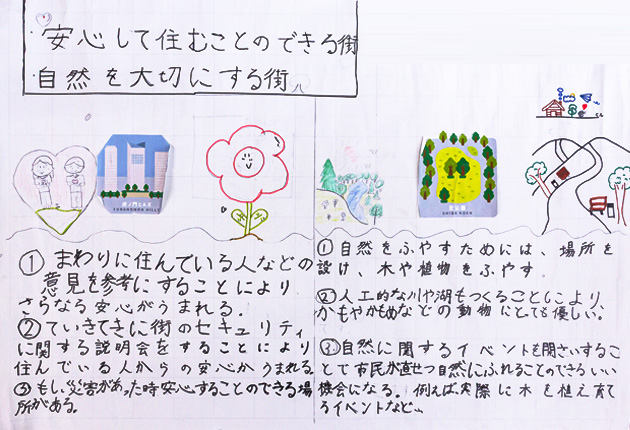 ・安心して住むことのできる街
・自然を大切にする街
虎ノ門ヒルズ
TORANOMON HILLS
芝公園
SHIBA KOEN
① まわりに住んでいる人などの
意見を参考にすることにより
さらなる安心がうまれる.
② ていきてきに街のセキュリティ
に関する説明会をすることにより
住んでいる人からの安心がうまれる.
③ もし災害があった時安心することのできる場
所がある.
① 自然をふやすためには、場所を
設け、木や植物をふやす.
② 人工的な川や湖もつくることにより
かもやかもめなどの動物にとても優しい.
③ 自然に関するイベントも開さいするこ
とで市民が直せつ自然にふれることのできるいい
機会になる. 例えば、実際に木を植え育て
るイベントなど…